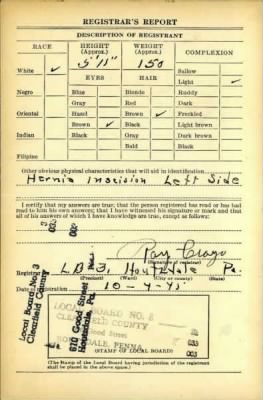 REGISTRAR'S REPORT
DESCRIPTION OF REGISTRANT
RACE HEIGHT (Approx.) WEIGHT (Approx.) COMPLEXION
5'11" 150
White ✓ Sallow
EYES HAIR Light ✓
Negro Blue Blonde Ruddy
Gray Red Dark
Oriental Hazel Brown ✓ Freckled
Brown ✓ Black Light brown
Indian Black Gray Dark brown
Bald Black
Filipino
Other obvious physical characteristics that will aid in identification
Hernia Inscision Left Side
I certify that my answers are true; that the person registered has read or has had
read to him his own answers; that I have witnessed his signature or mark and that
all of his answers of which I have knowledge are true, except as follows:
033
003
Ray
(Signature of registrar)
Registrar LB #3, Houtzdale Pa.
(Precinct) (Ward) (City or county) (State)
Date of registration 10-4-45
Local Board No. 3
Clearfield County
610 Good Street
Houtzdale, Pa.
LOCAL BOARD NO. 3
CLEARFIELD COUNTY
Good Street
HOUTZDALE, PENNA.
033
003
(STAMP OF LOCAL BOARD)
(The Stamp of the Local Board having jurisdiction of the registrant
shall be placed in the above space.)